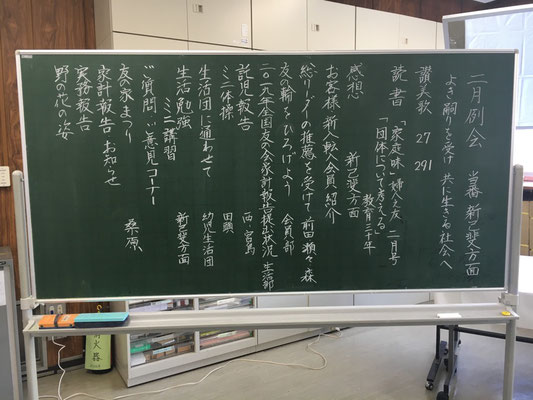 二月例会 当番 新己斐方面
よき嗣りを受け 共に生きる社会へ
讃美歌 27 291
読書 「家庭味」婦人之友 二月号
「団体について考える」 教育三十年
感想 新己斐方面
お客様 新入転入会員紹介
総リーダーの推薦を受けて 前田 瀬々森
友の輪をひろげよう 会員部
二〇一九年全国友の会家計報告提出状況 生活部
託児報告 西・宮島
ミニ体操 田頭
生活団に通わせて 幼児生活団
生活勉強 ミニ講習 新己斐方面
ご質問・ご意見コーナー
友の家まつり 桑原
家計報告 お知らせ
実務報告
野の花の姿
消火器